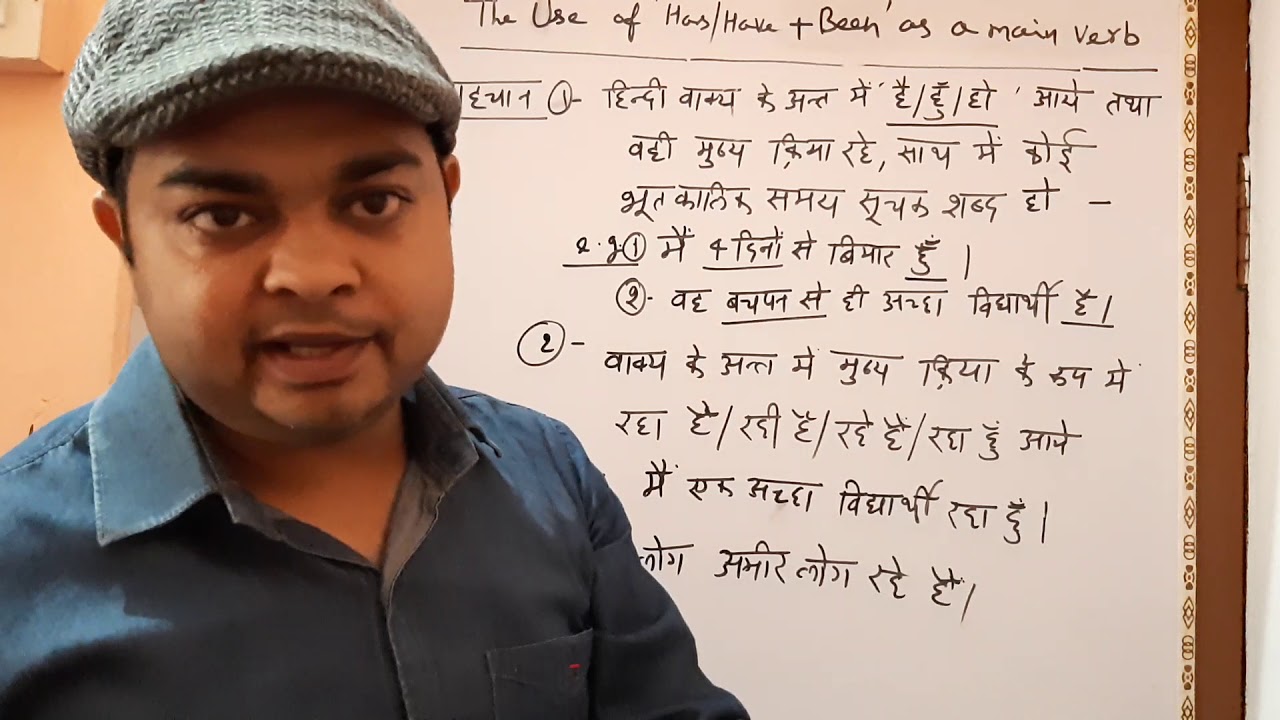 The Use of 'Has/Have + Been' as a main verb
पहचान ①- हिन्दी वाक्य के अन्त में 'है/हूँ/हो' आये तथा
वही मुख्य क्रिया रहे, साथ में कोई
भूतकालिक समय सूचक शब्द हो -
e.g.① मैं 4 दिनों से बिमार हूँ।
②- वह बचपन से ही अच्छा विद्यार्थी है।
②- वाक्य के अन्त में मुख्य क्रिया के रूप में
रहा है/रही है/रहे हैं/रहा हूँ आये
मैं एक अच्छा विद्यार्थी रहा हूँ।
लोग अमीर लोग रहे हैं।